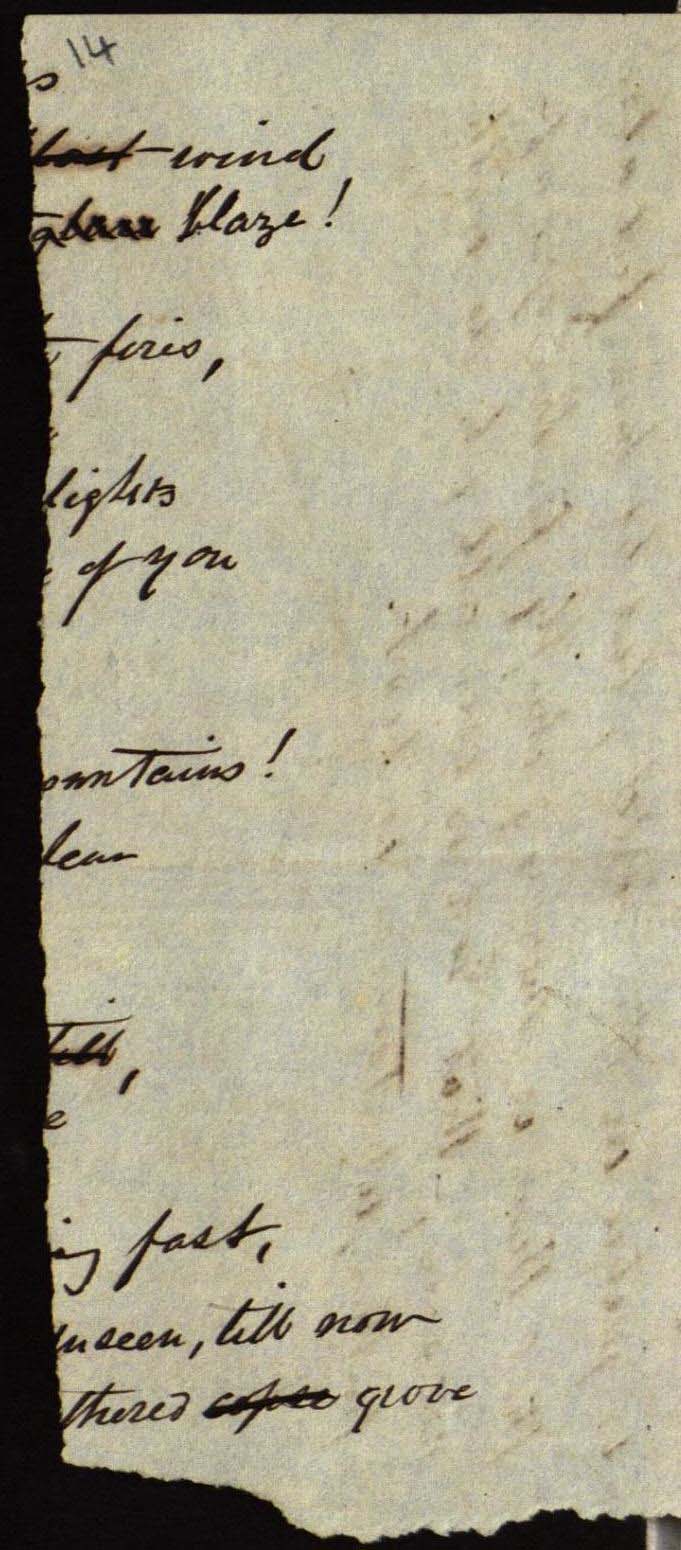 14
s
wind
blaze!
fires,
lights
of you
ountains!
lear
till,
e
ing fast,
unseen, till now
thered copse grove